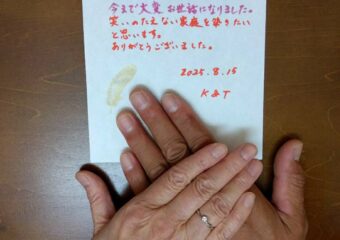 今まで大変お世話になりました。
笑いのたえない家庭を築きたい
と思います。
ありがとうございました。
2025.8.15
K&T